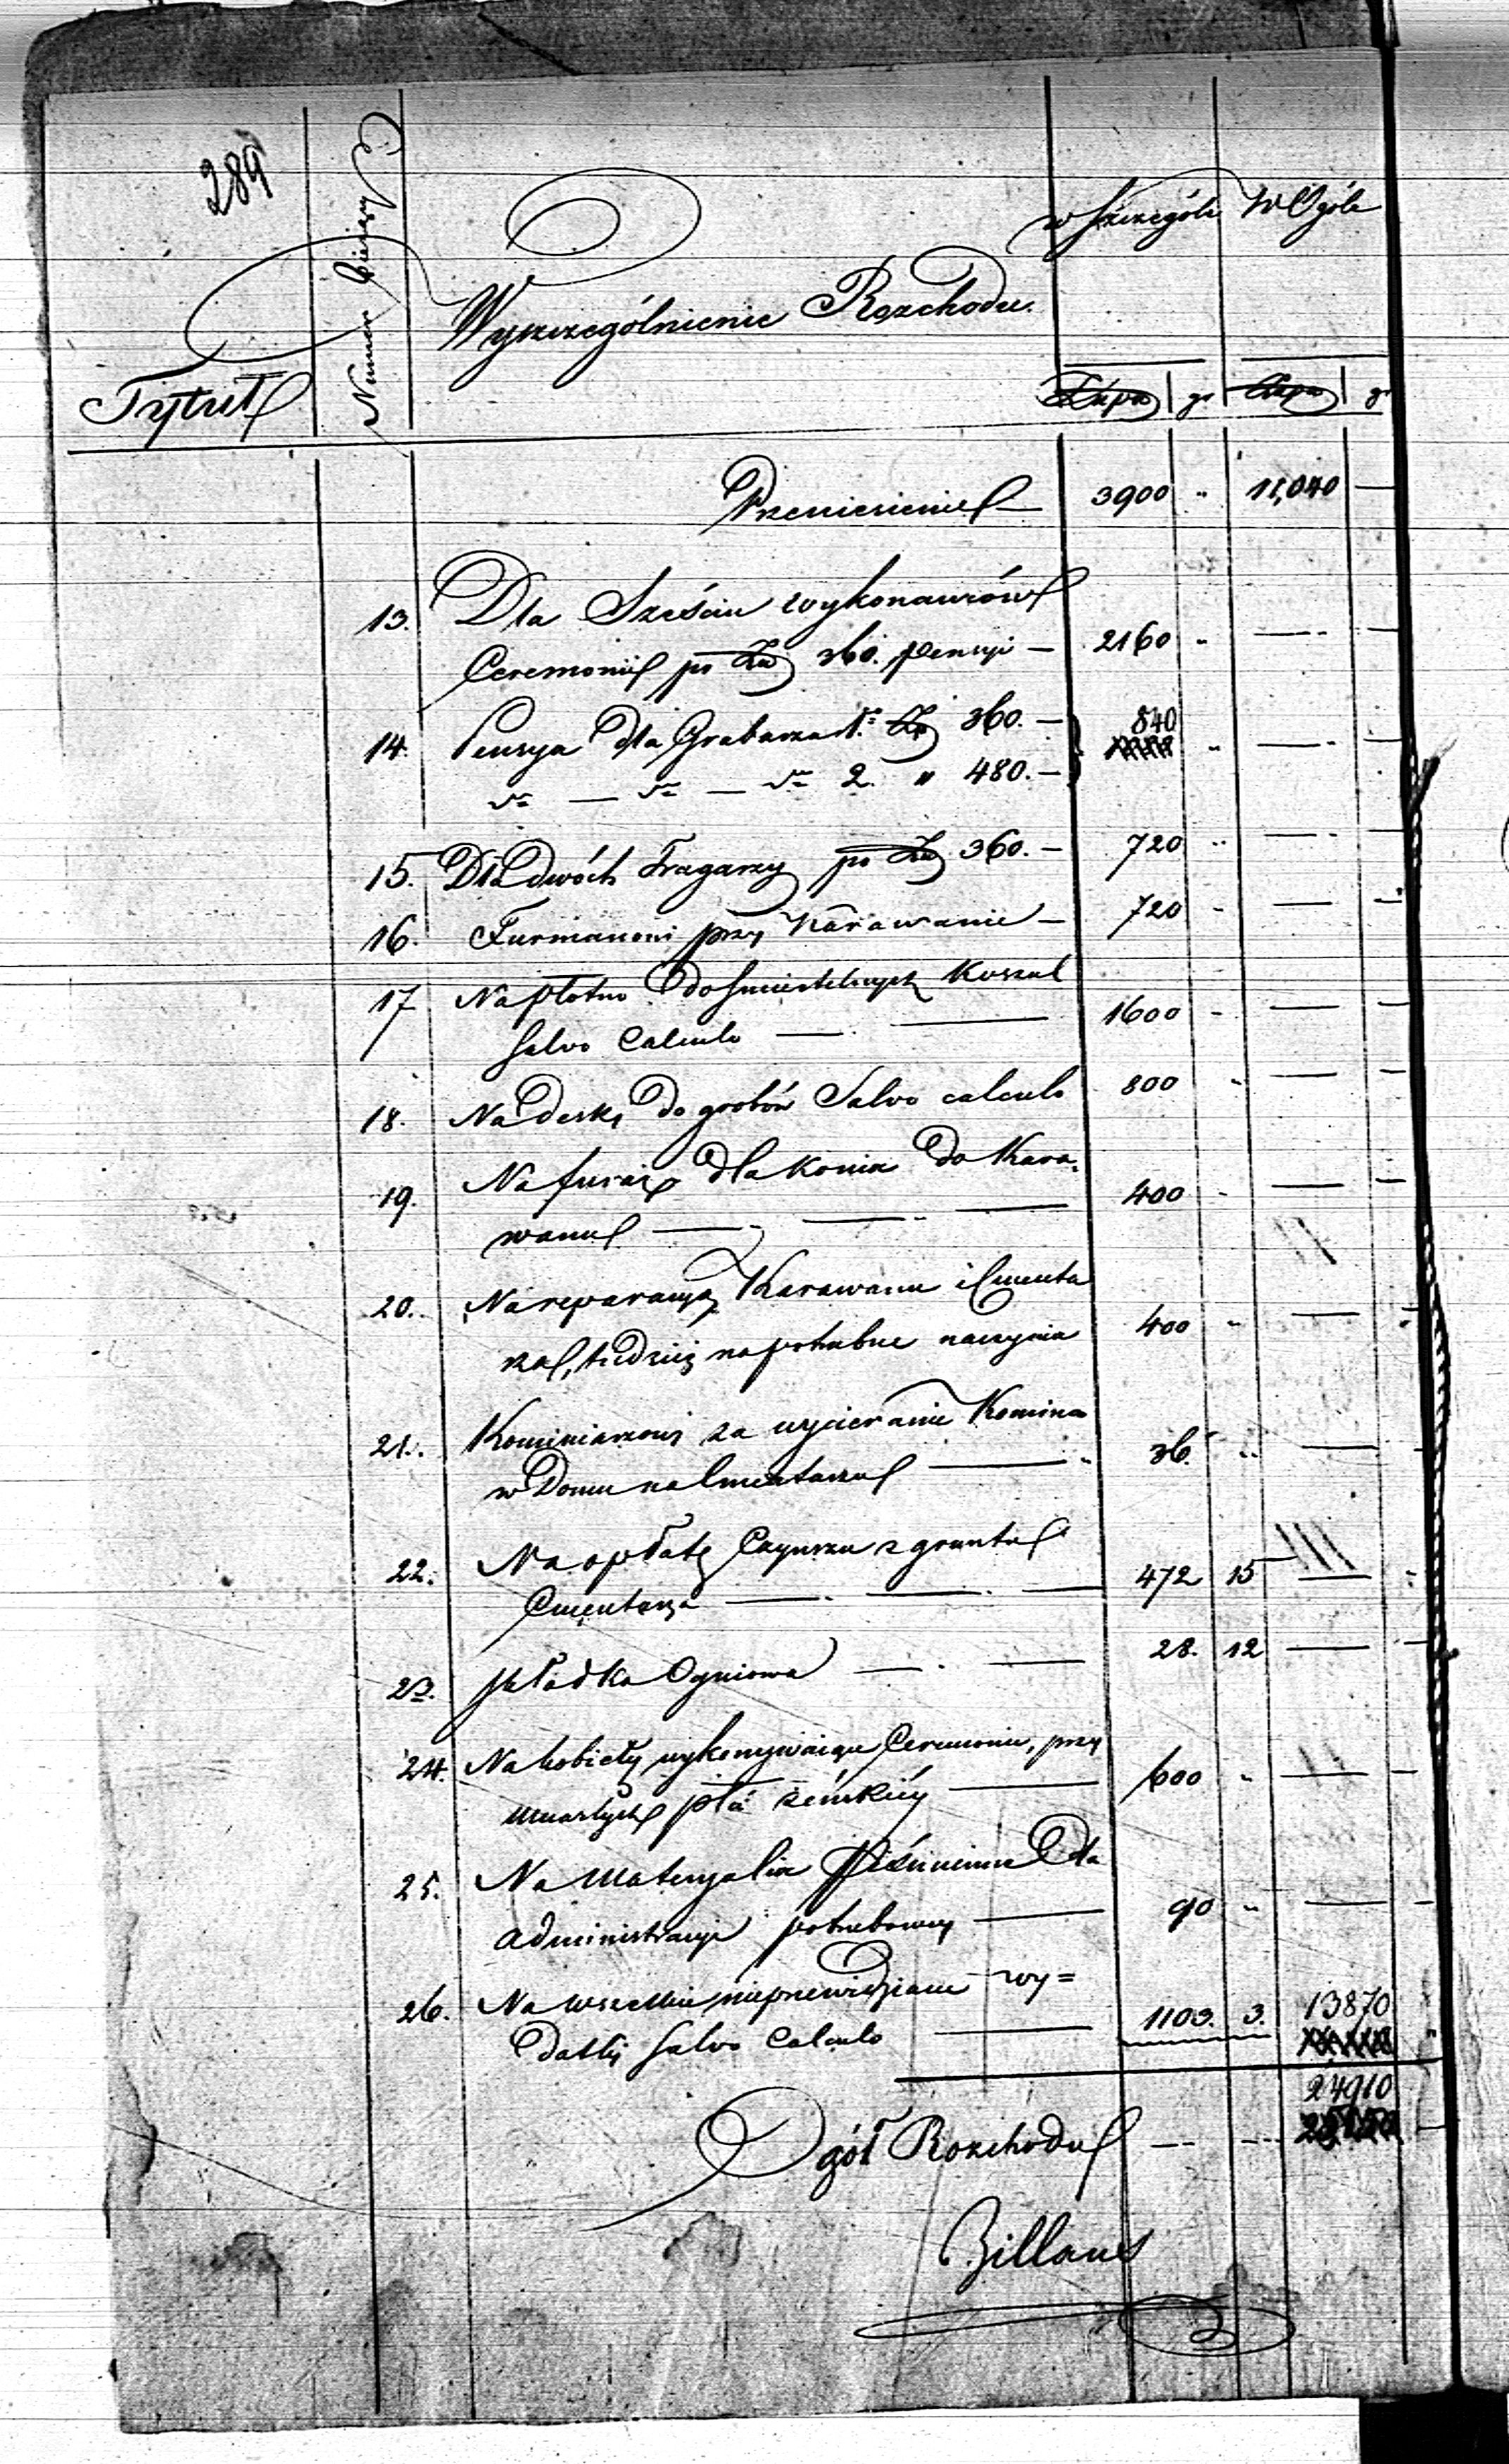 289
Tytuł
Numer bieżący
Wyszczególnienie Rozchodu.
w szczególe W Ogóle
Złp gr Złp gr
Przeniesienie — 3900 " 11,040 —
13. Dla Sześciu wykonawców
Ceremonii po Zł 360. pensyi — 2160 " — —
14. Pensya dla Grabarza 1. Zł 360. — 840
" — —
2. " 480. —
15. Dla dwóch Tragarzy po Zł 360. — 720 " — —
16. Furmanowi przy Karawanie — 720 " — —
17 Na płótno do śmiertelnych Koszul
Salvo Calculo — — 1600 " — —
18. Na deski do grobów Salvo calculo 800 " — —
19. Na furaż dla konia do Kara-
wanu — — — 400 " — —
20. Na reparacyą Karawanu i Cmenta
rza, tudzież na potrzebne naczynia 400 " — —
21. Kominiarzowi za wycieranie Komina
w Domu na Cmentarzu — 36. " —
22. Na opłatę Czynszu z gruntu
Cmentarza — — — 472 15 —
23. Składka Ogniowa — — 28. 12 — —
24. Na kobiety wykonywaiące Ceremonie, przy
umarłych płci żeńskiéy — 600 " — —
25. Na Materyalia Piśmienne Dla
Administracyi potrzebowey — 90 " — —
26. Na wszelkie nieprzewidziane wy=
datki Salvo Calculo — 1103. 3. 13870 "
24910
Ogół Rozchodu — — —
Billans